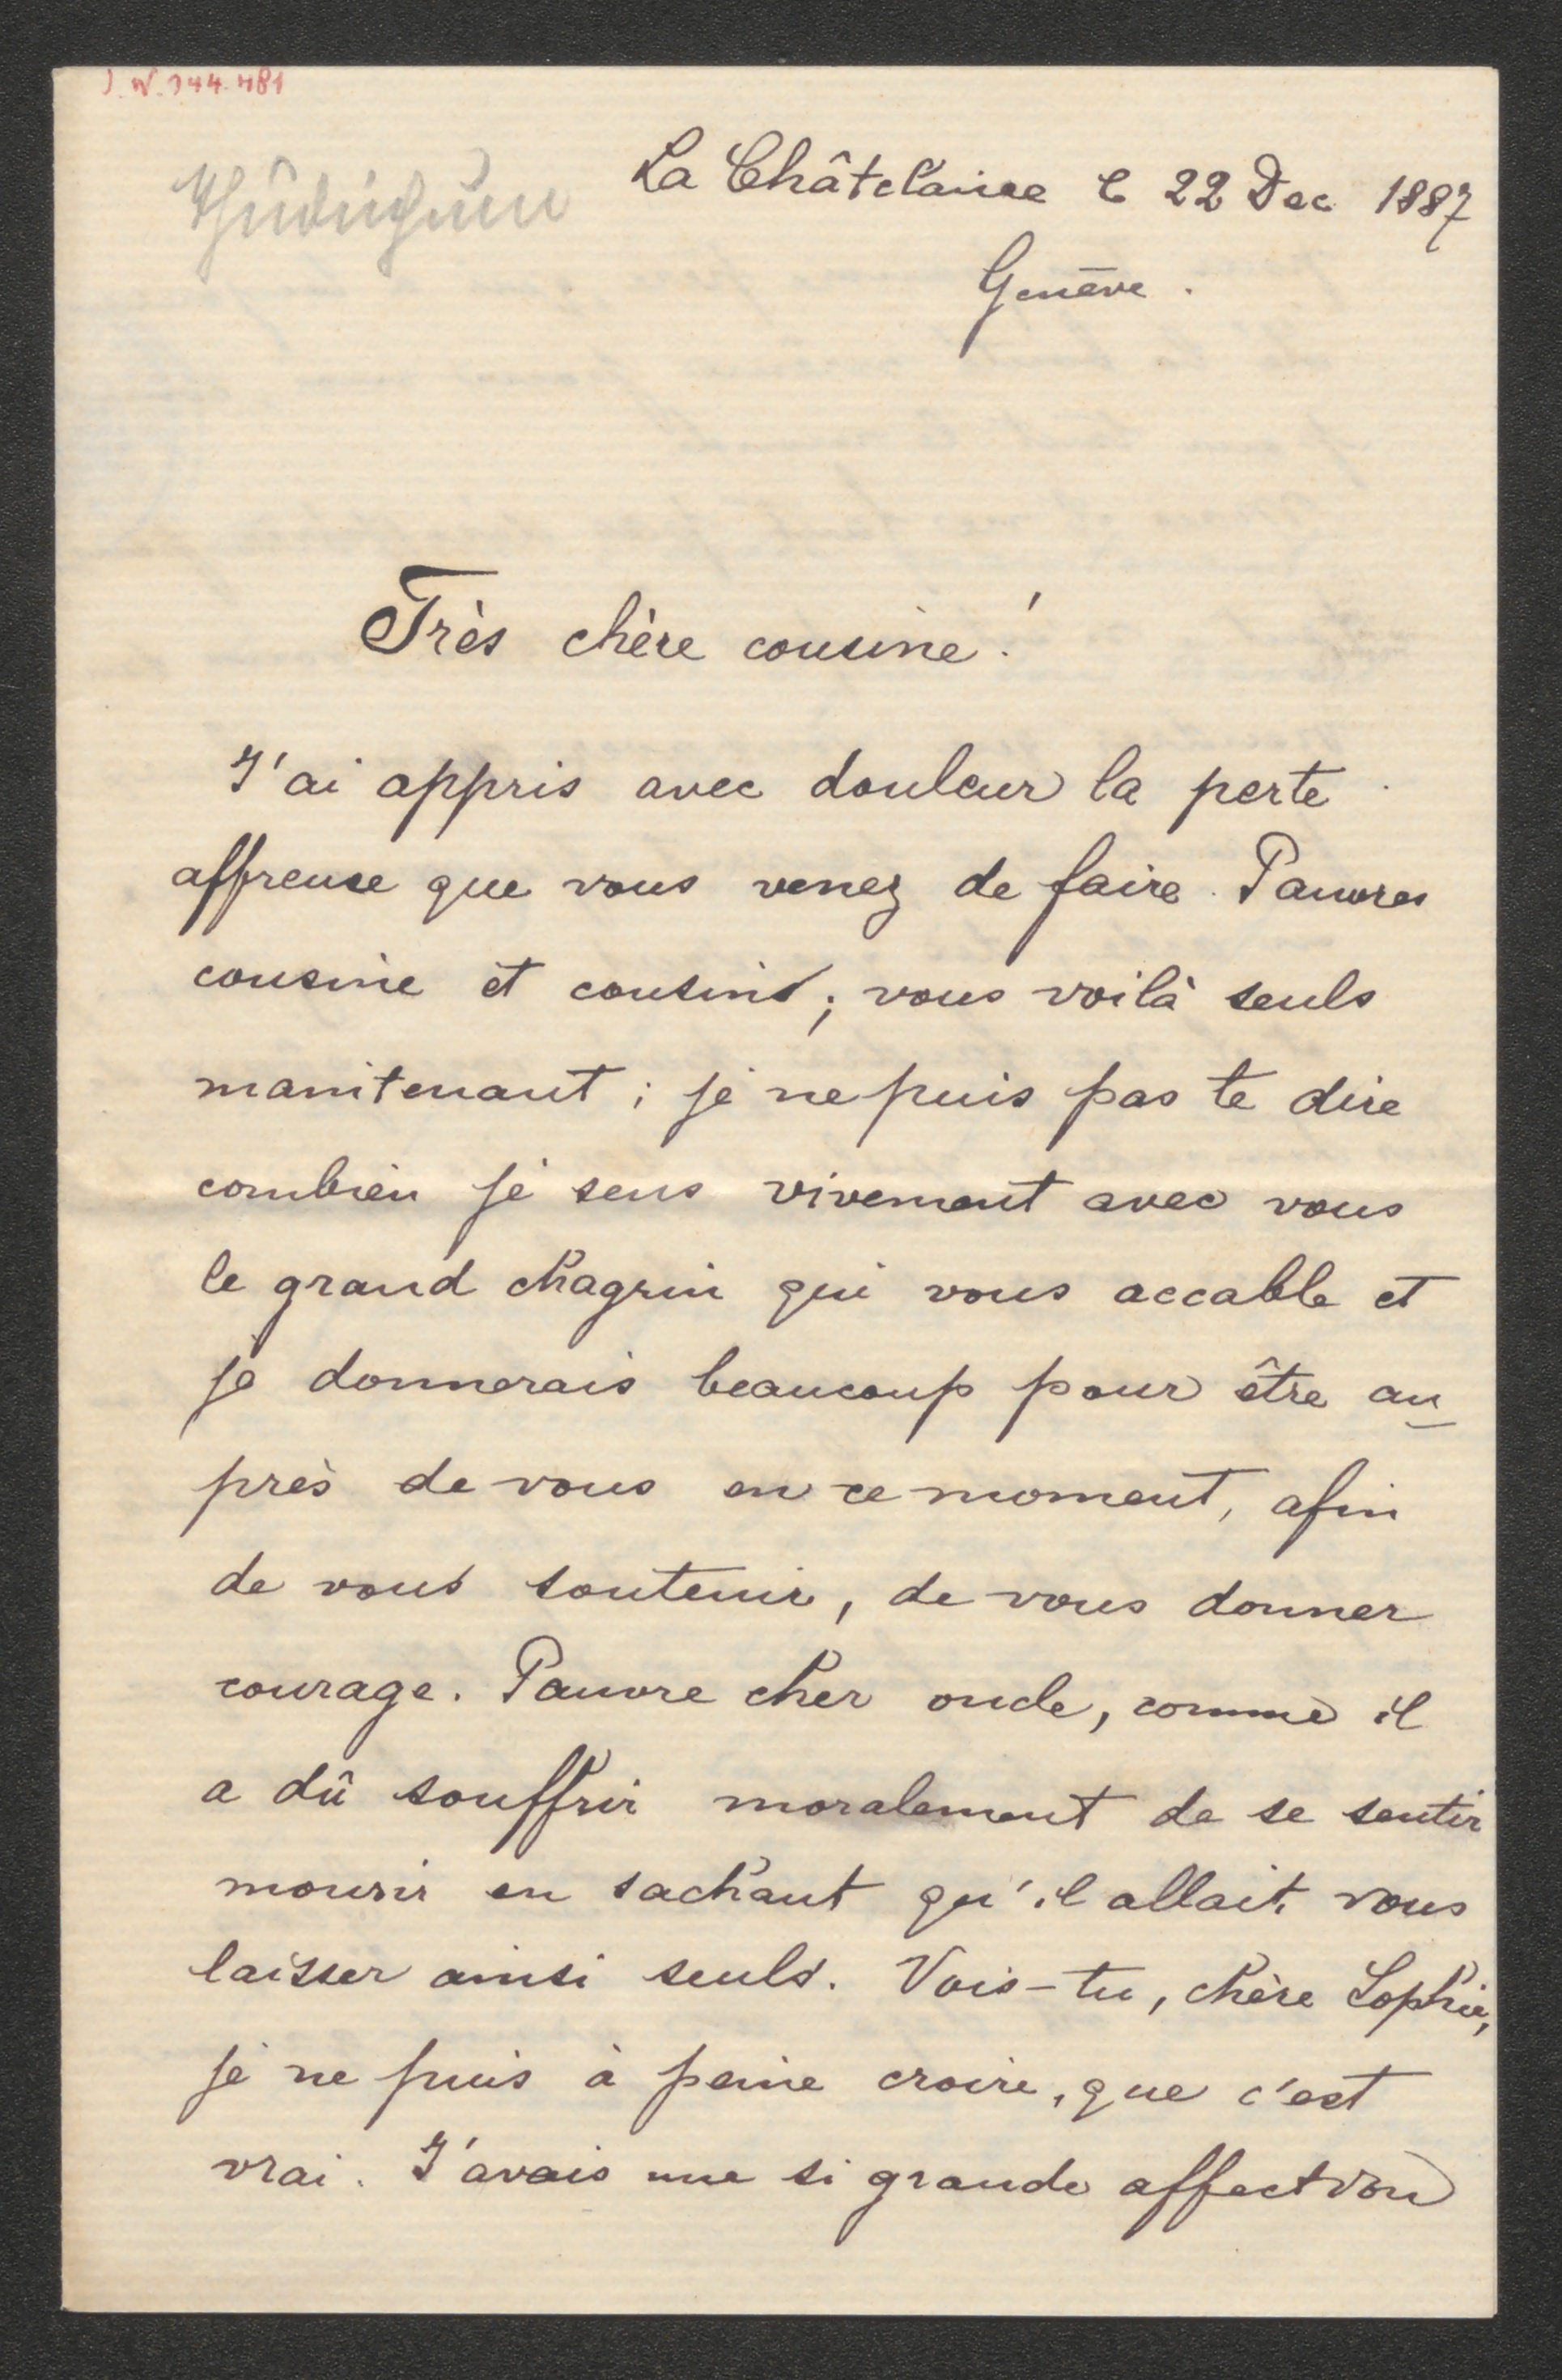 J.N. 144.481
La Châtelaine le 22 Dec 1887
Genève.
Très chère cousine!
J'ai appris avec douleur la perte
affreuse que vous venez de faire. Pauvres
cousine et cousins; vous voilà seuls
manitenant; je ne puis pas te dire
combien je sens vivement avec vous
le grand chagrin qui vous accable et
je donnerais beaucoup pour être au_
près de vous en ce moment, afin
de vous soutenir, de vous donner
courage. Pauvre cher oncle, comme il
a dû souffrir moralement de se sentir
mourir en sachant qu'il allait vous
laisser ainsi seuls. Vois-tu, chère Sophie,
je ne puis à peine croire, que c'est
vrai. J'avais une si grande affection